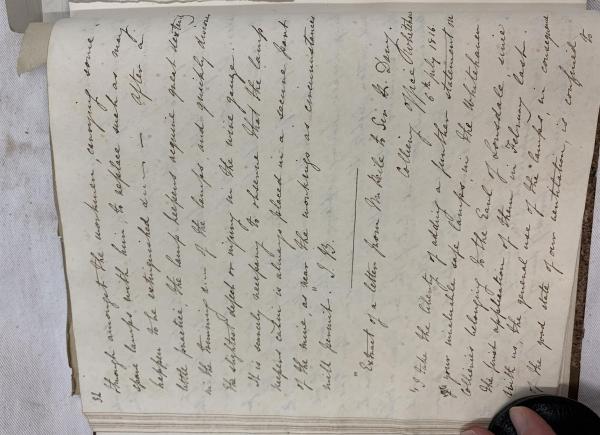 through amongst the workmen, carrying some
spare lamps with him, to replace such as may
happen to be extinguished — After a
little practice the lamp keepers acquire great dexterity
in the trimming &c of the lamps, and quickly discover
the slightest defect or injury in the wire gauze.
It is scarcely necessary to observe that the lamp
keepers cabin is always placed in a secure part
of the mine, as near the workings as circumstances
will permit. J. B.
"Extract of a letter from Mr Peile to Sir H. Davy.
Colliery Office
6th July 1816
"I take the liberty of adding a further statement on
your invaluable safe lamps, in the Whitehaven
Collieries belonging to the Earl of Lonsdale since
the first application of them in February last.
With us the general use of the lamps, in consequence
of the good state of our ventilation, is confined to